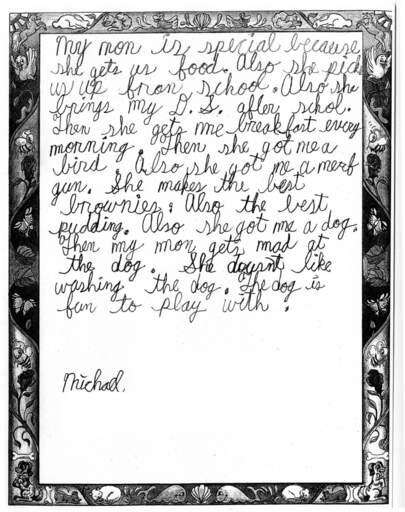 My mon is special because
she gets us food. Also she pick
us up fron school. Also she
brings my D.S. after schol.
Then she gets me breakfast every
morning. Then she got me a
bird. Also she got me a merf
gun. She makes the best
brownies. Also the best
pudding. Also she got me a dog.
Then my mon gets mad at
the dog. She doesnt like
washing the dog. The dog is
fun to play with.
Michael.